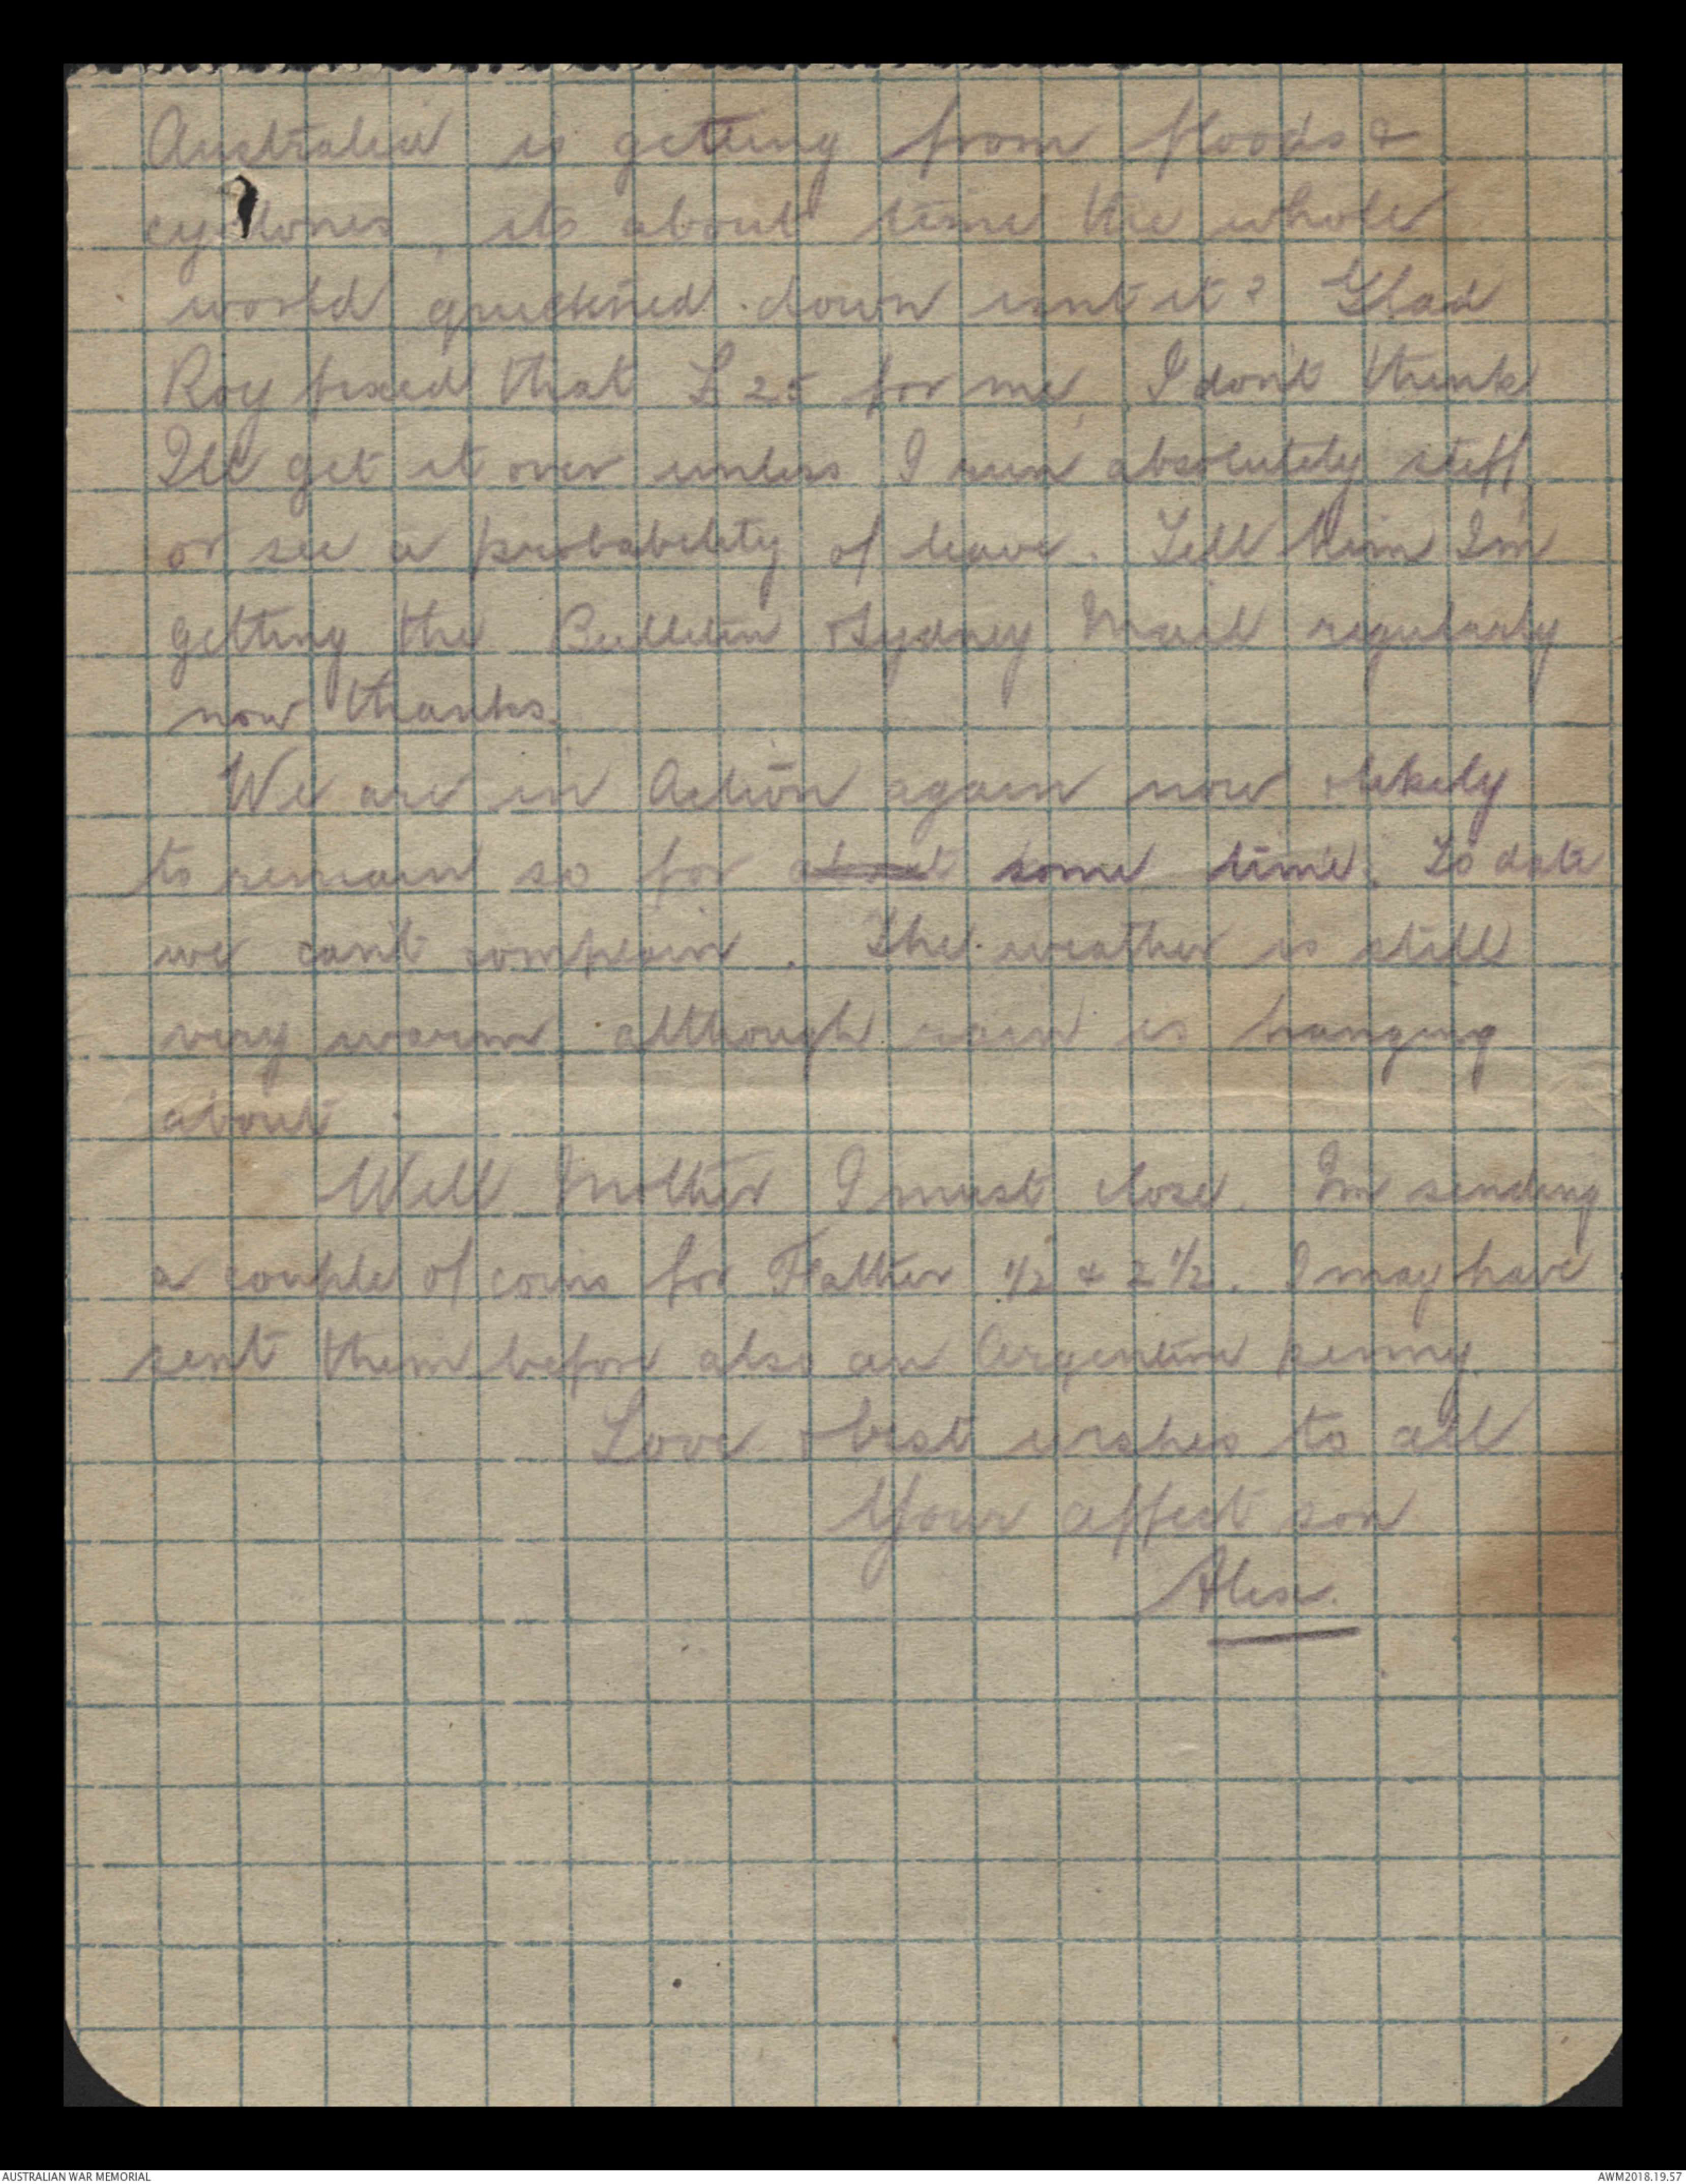 Australia is getting from floods &
cyclones, its about time the whole
world quietened down isnt it? Glad
Roy fixed that £25 for me, I don't think
Ill get it over unless I run absolutely stiff,
or see a probability of leave. Tell him I'm
getting the Bulletin & Sydney Mail regularly
now thanks.
We are in Action again now & likely
to remain so for about some time. To date
we can't complain. The weather is still
very warm although rain is hanging
about.
Well Mother I must close. Im sending
a couple of coins for Father 1/2 & 2 1/2. I may have
sent them before also an Argentine penny.
Love & best wishes to all
Your affect son
Alex.
AUSTRALIAN WAR MEMORIAL
AWM2018.19.57